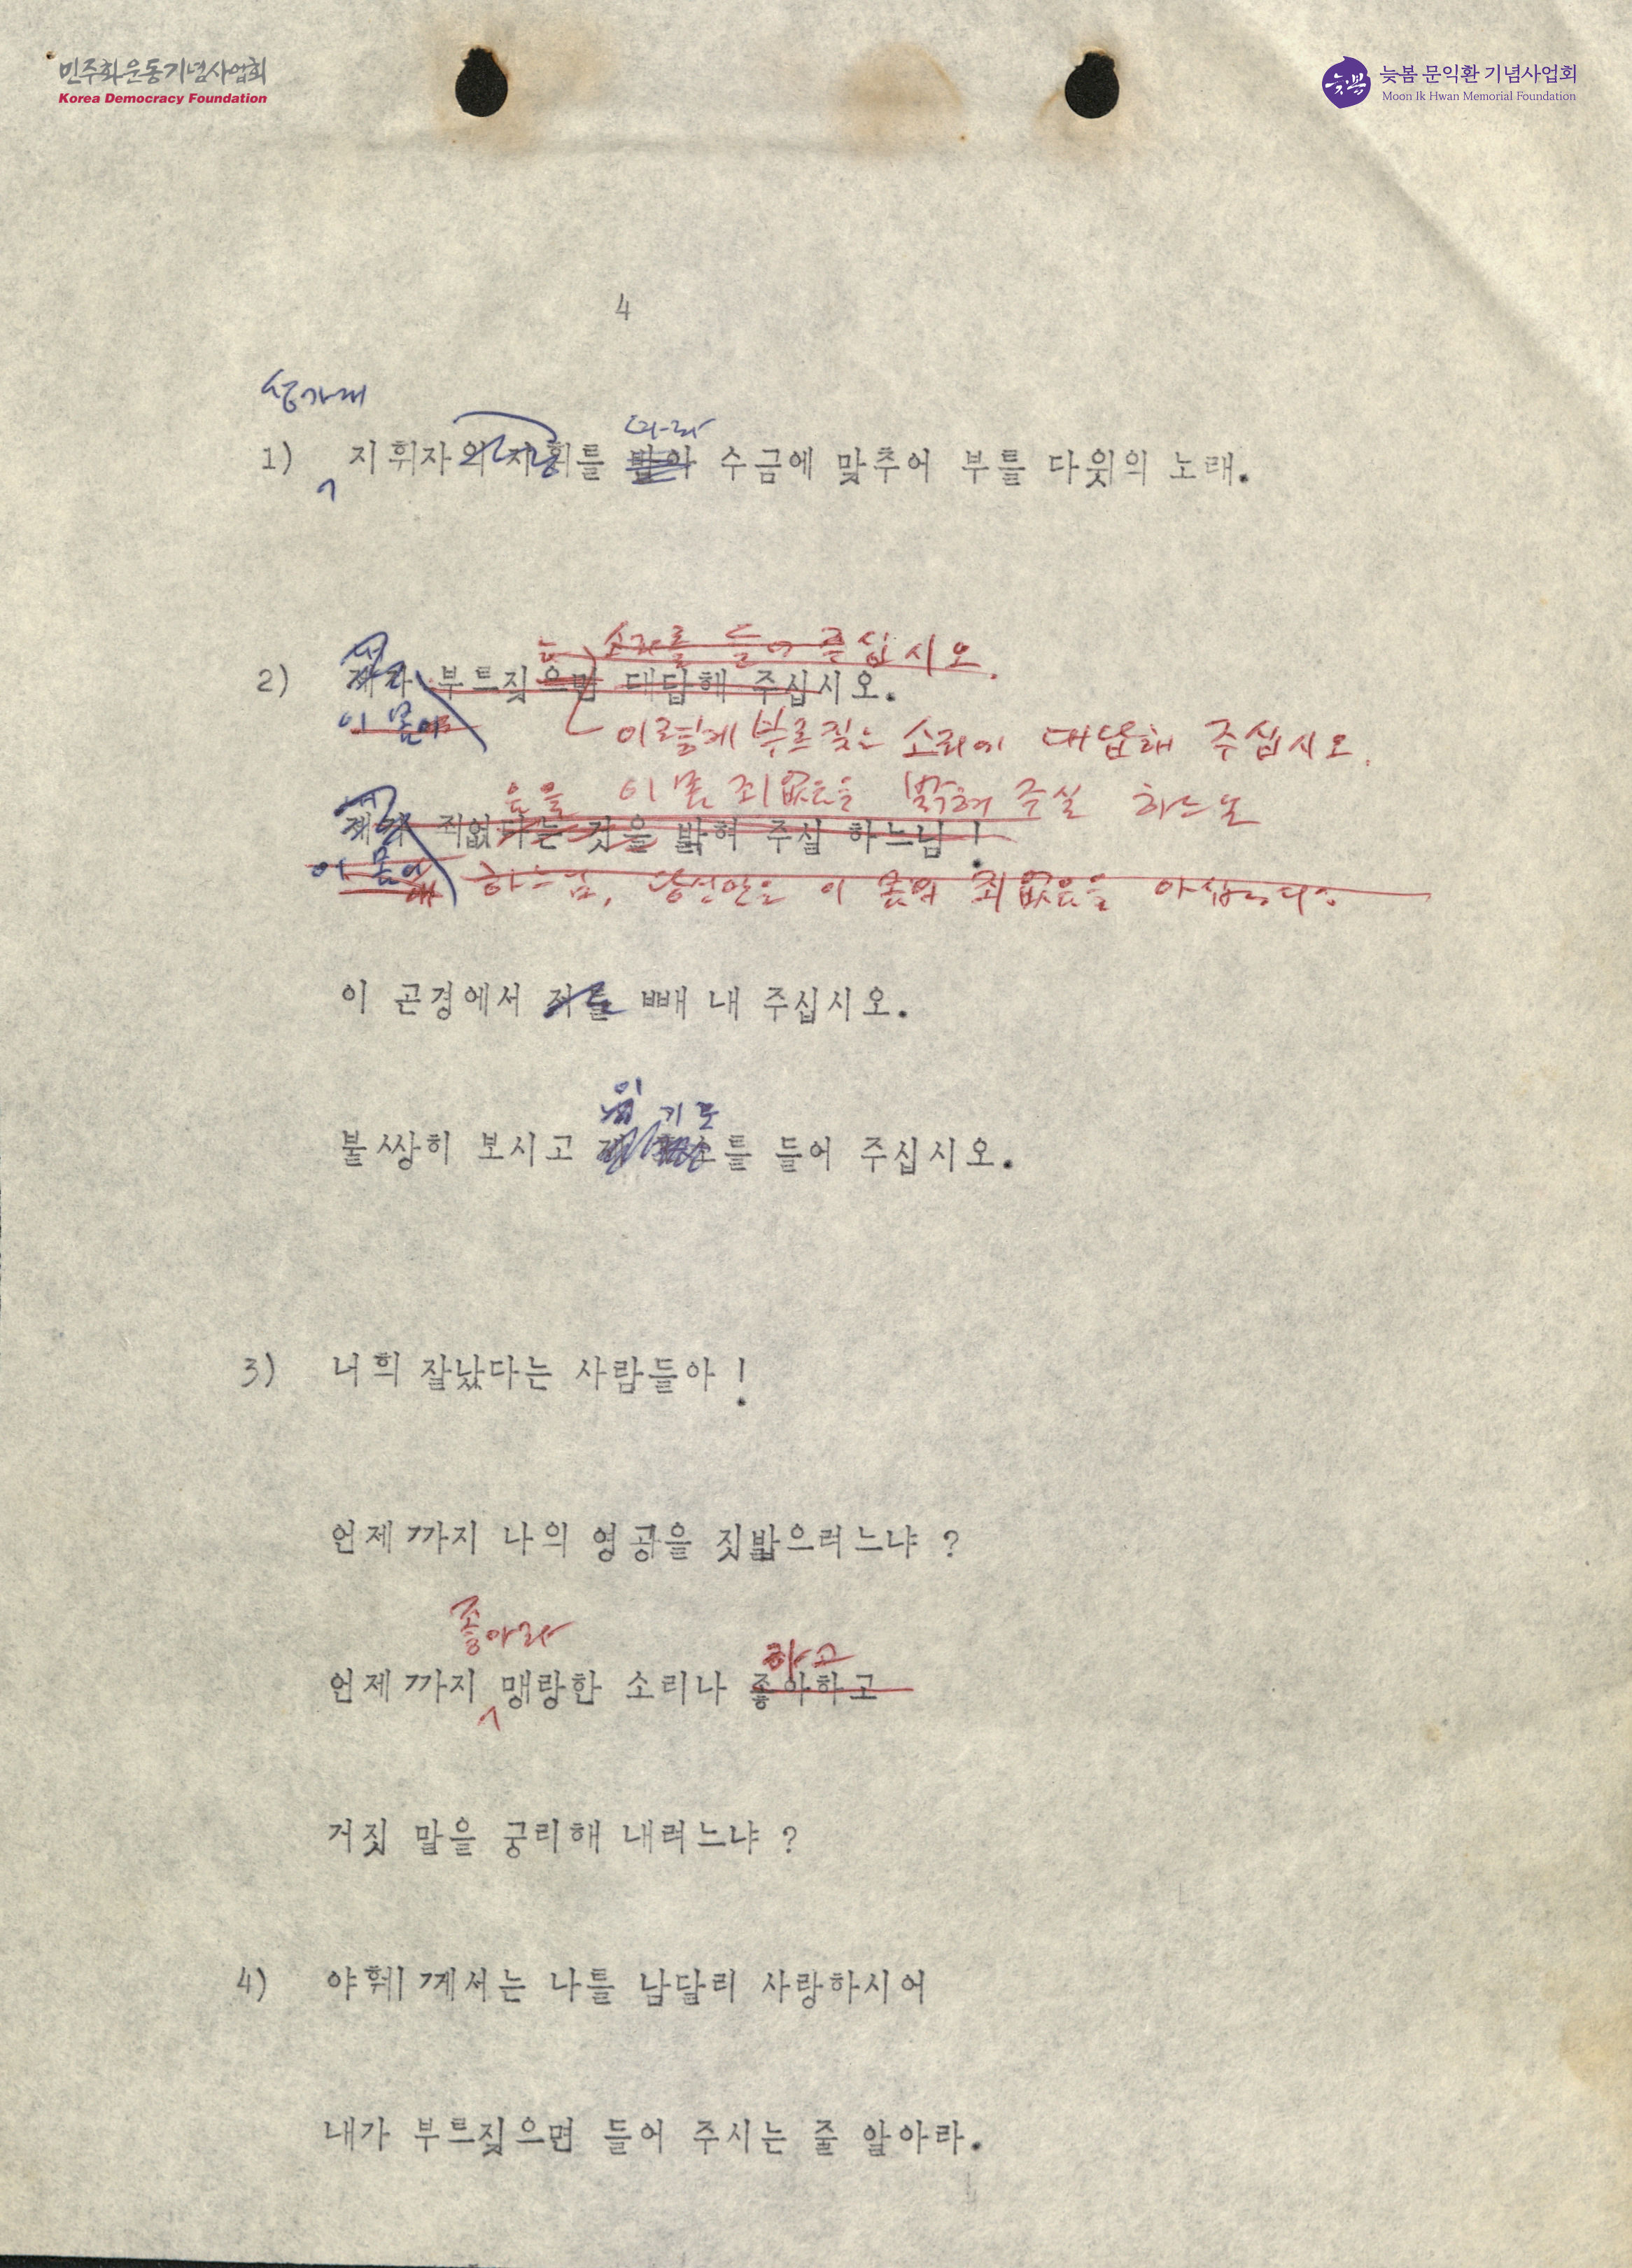 민주화운동기념사업회
Korea Democracy Foundation
늦봄
늦봄 문익환 기념사업회
Moon Ik Hwan Memorial Foundation
4
성가대
따라
1) 지휘자의 지휘를 받아 수금에 맞추어 부를 다윗의 노래.
는 소리를 들어 주십시오.
2) 제가 부르짖으면 대답해 주십시오.
이 몸이
이렇게 부르짖는 소리에 대답해 주십시오.
음을 이 몸 죄없음을 밝혀 주실 하느님
제가 죄없다는 것을 밝혀 주실 하느님!
이 몸이 하느님, 당신만은 이 몸의 죄없음을 아십니다.
이 곤경에서 저를 빼 내 주십시오.
기도
불쌍히 보시고 를 들어 주십시오.
3) 너희 잘났다는 사람들아!
언제까지 나의 영광을 짓밟으려느냐?
좋아라
하고
언제까지 맹랑한 소리나 좋아하고
거짓 말을 궁리해 내려느냐?
4) 야훼께서는 나를 남달리 사랑하시어
내가 부르짖으면 들어 주시는 줄 알아라.